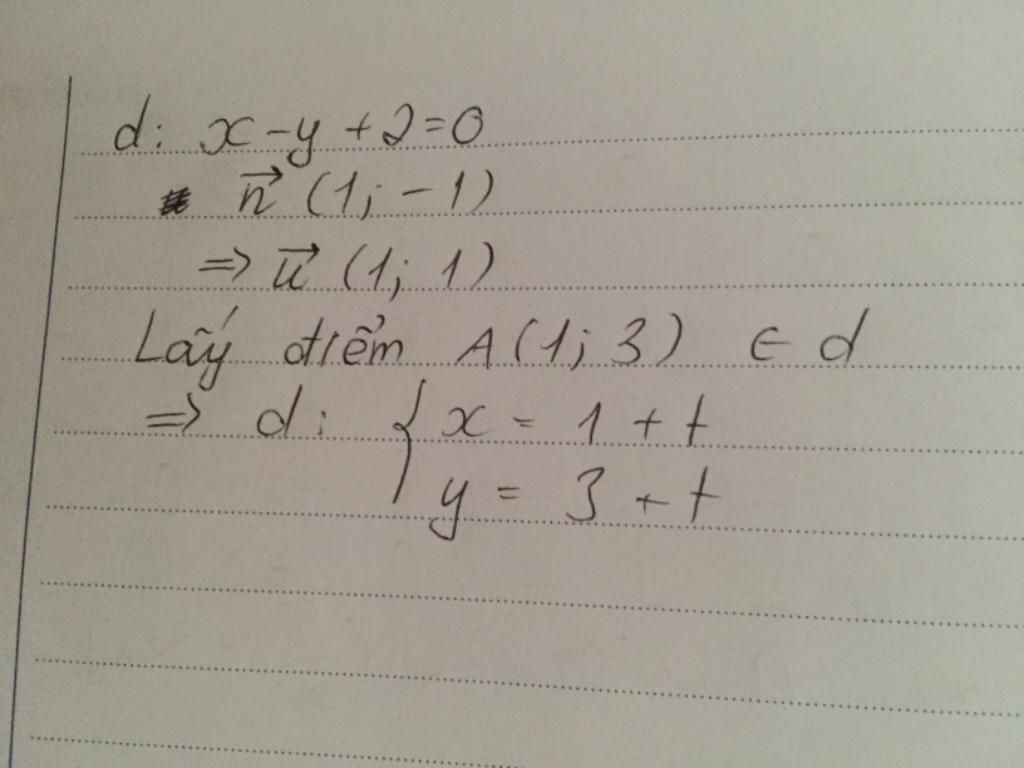 d: x - y + 2 = 0
n⃗ (1; -1)
=> u⃗ (1; 1)
Lấy điểm A(1; 3) ∈ d
=> d: { x = 1 + t
y = 3 + t